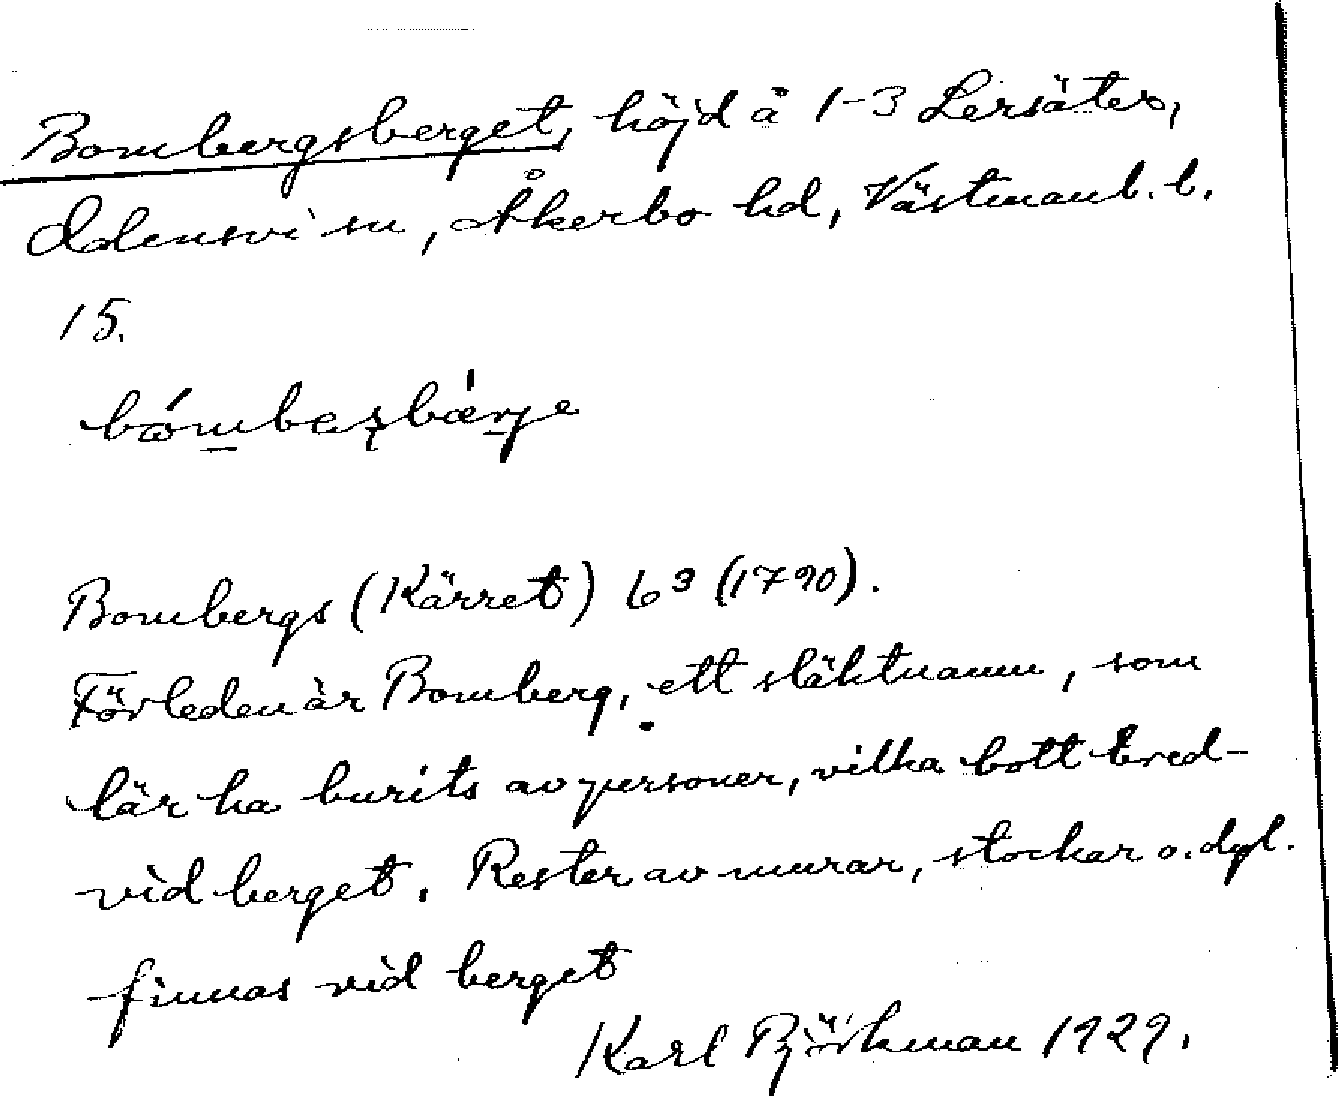 Bombergsberget, höjd å 1-3 Lersäter,
Odensvi sn, Åkerbo hd, Västmanl. l.
15.
Bombergs (Kärret) 6³ (1790).
Förleden är Bomberg, ett släktnamn, som
lär ha burits av personer, vilka bott bred-
vid berget. Rester av murar, stockar o. dyl.
finnas vid berget
Karl Björkman 1929.